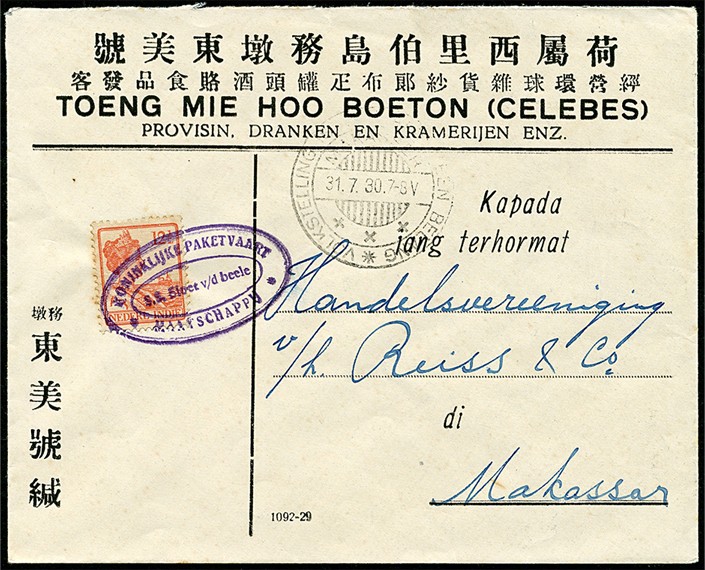 號美東墩務島伯里西屬荷
客發品食賂酒頭罐疋布郞紗貨雜球環營經
TOENG MIE HOO BOETON (CELEBES)
PROVISIN, DRANKEN EN KRAMERIJEN ENZ.
31.7.30.7-8V
VOLKSTELLING
KONINKLIJKE PAKETVAART
S.S. Sloet v/d beele
MAATSCHAPPIJ
12½
NEDERL-INDIE
Kapada
jang terhormat
Handelsvereeniging
v/h. Reiss & Co.
di
Makassar
墩務
東美號緘
1092-29